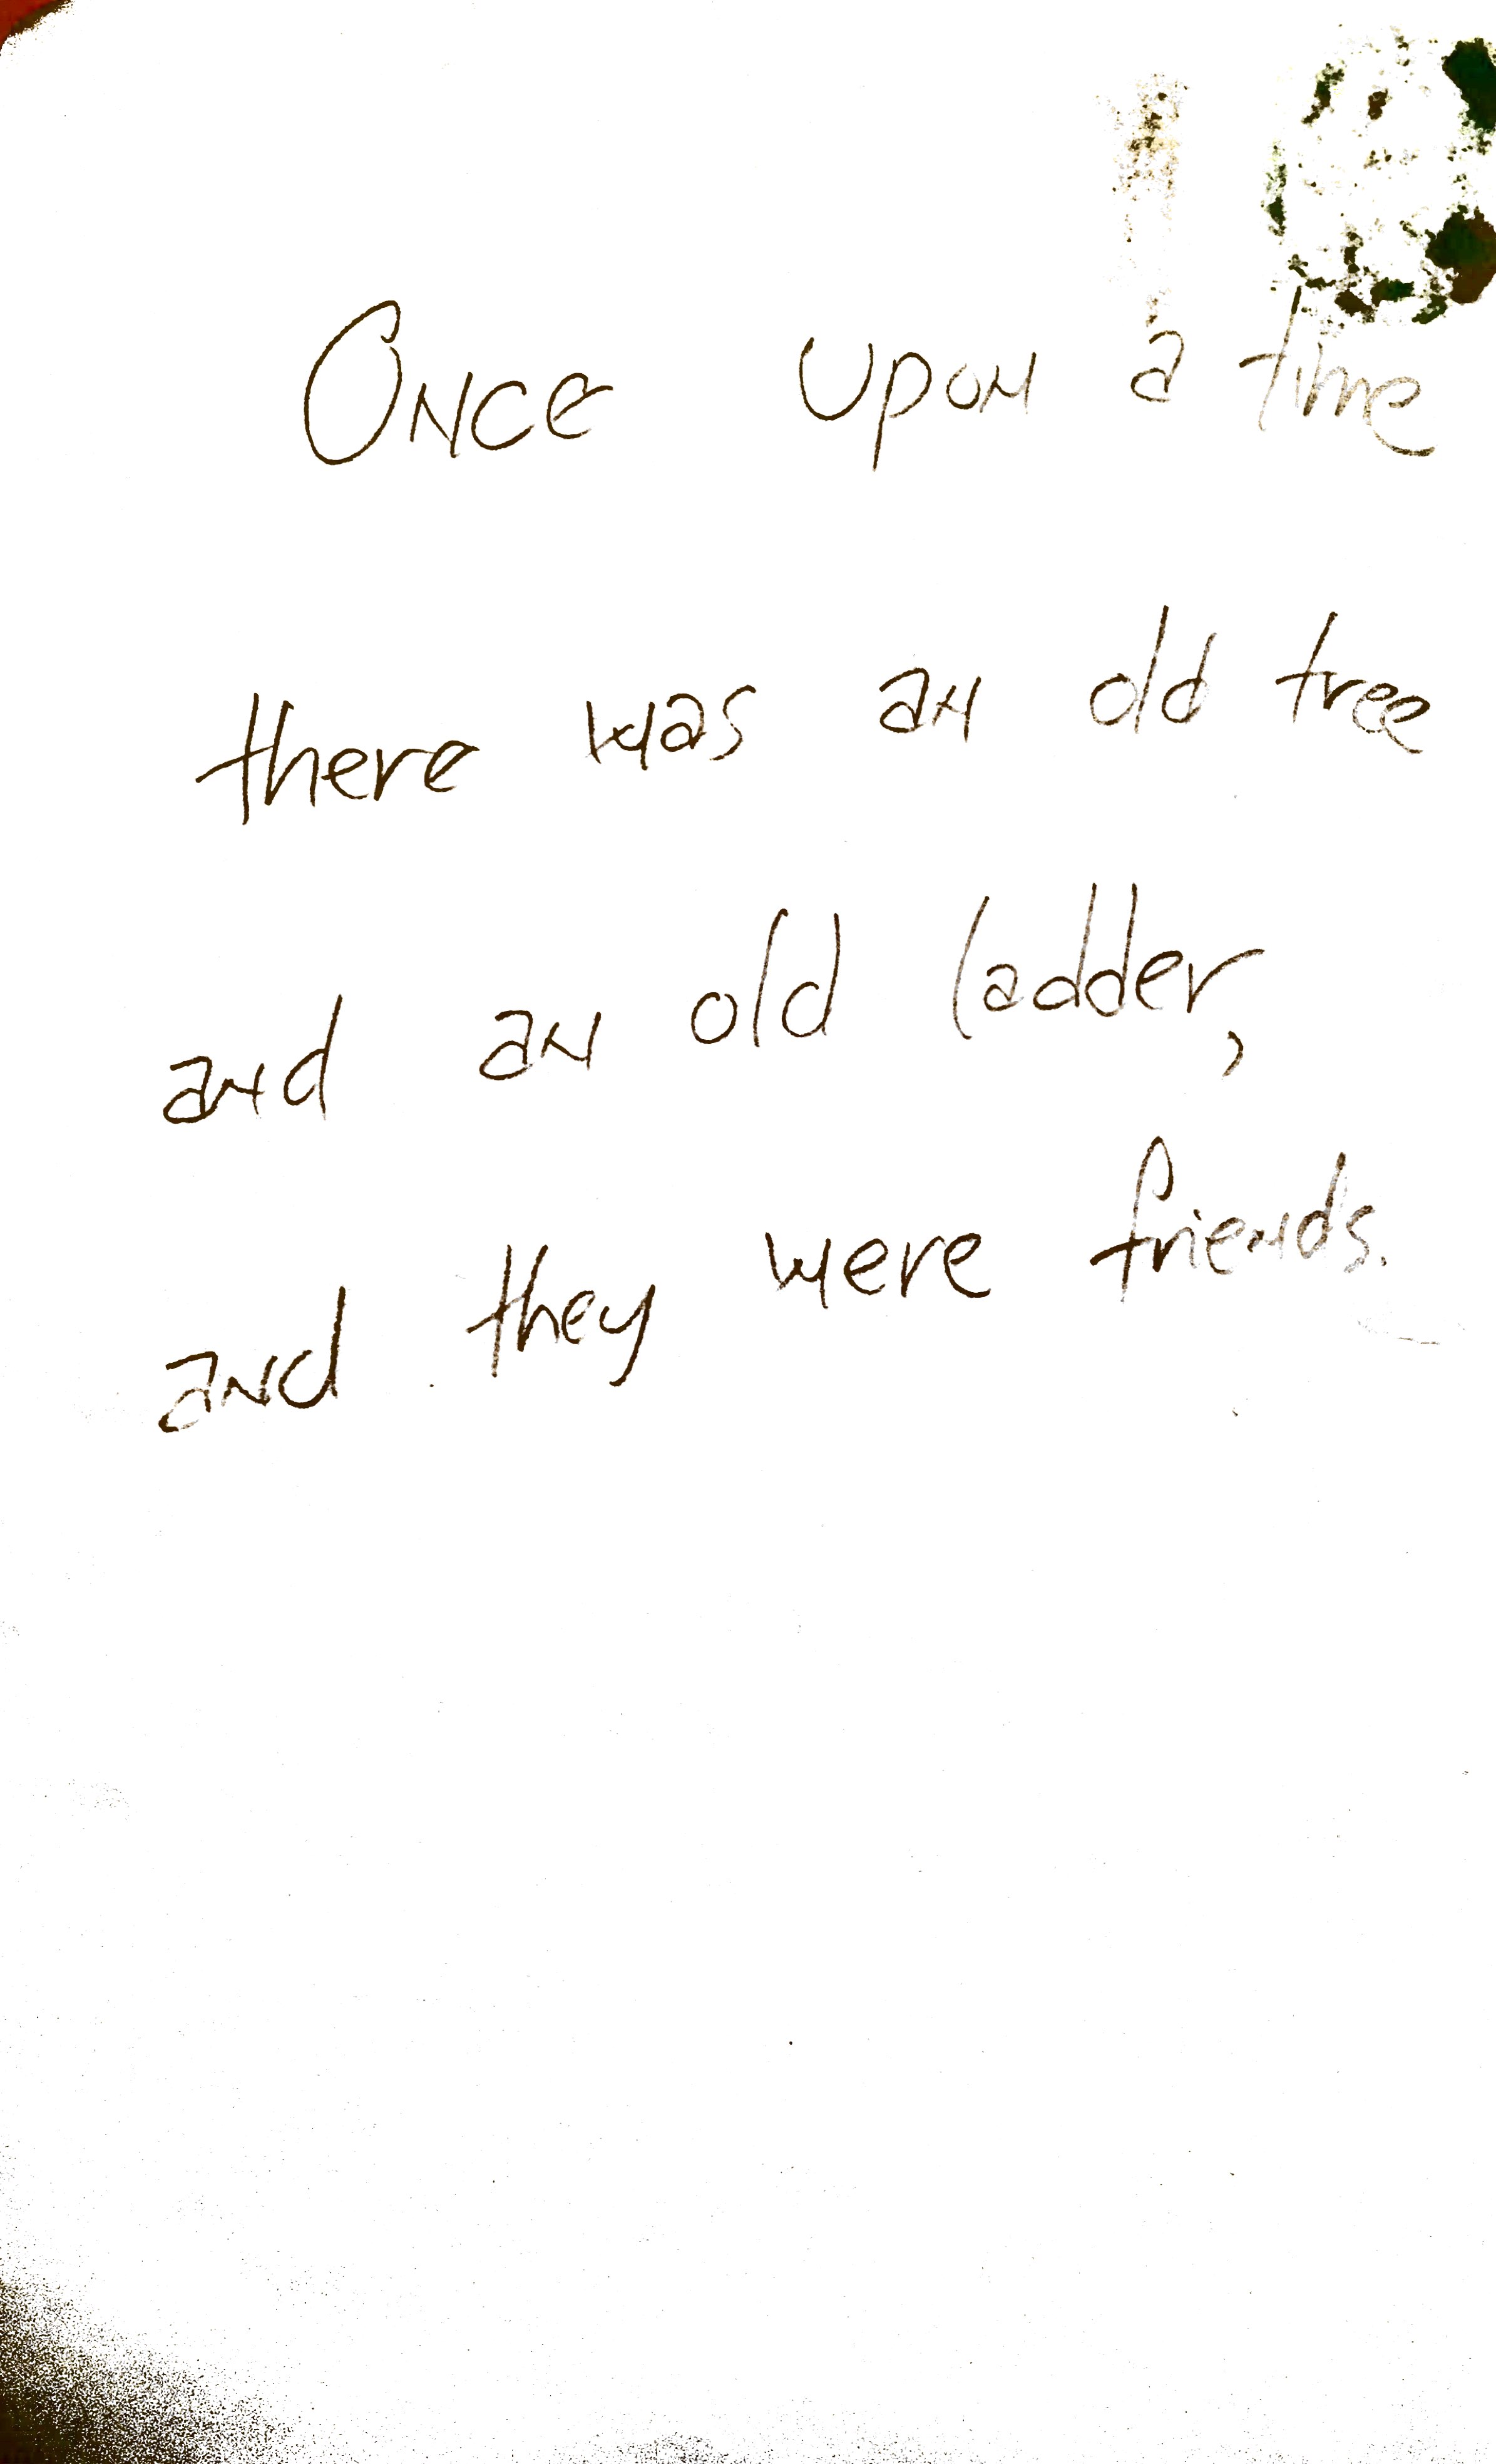 Once upon a time
there was an old tree
and an old ladder,
and they were friends.